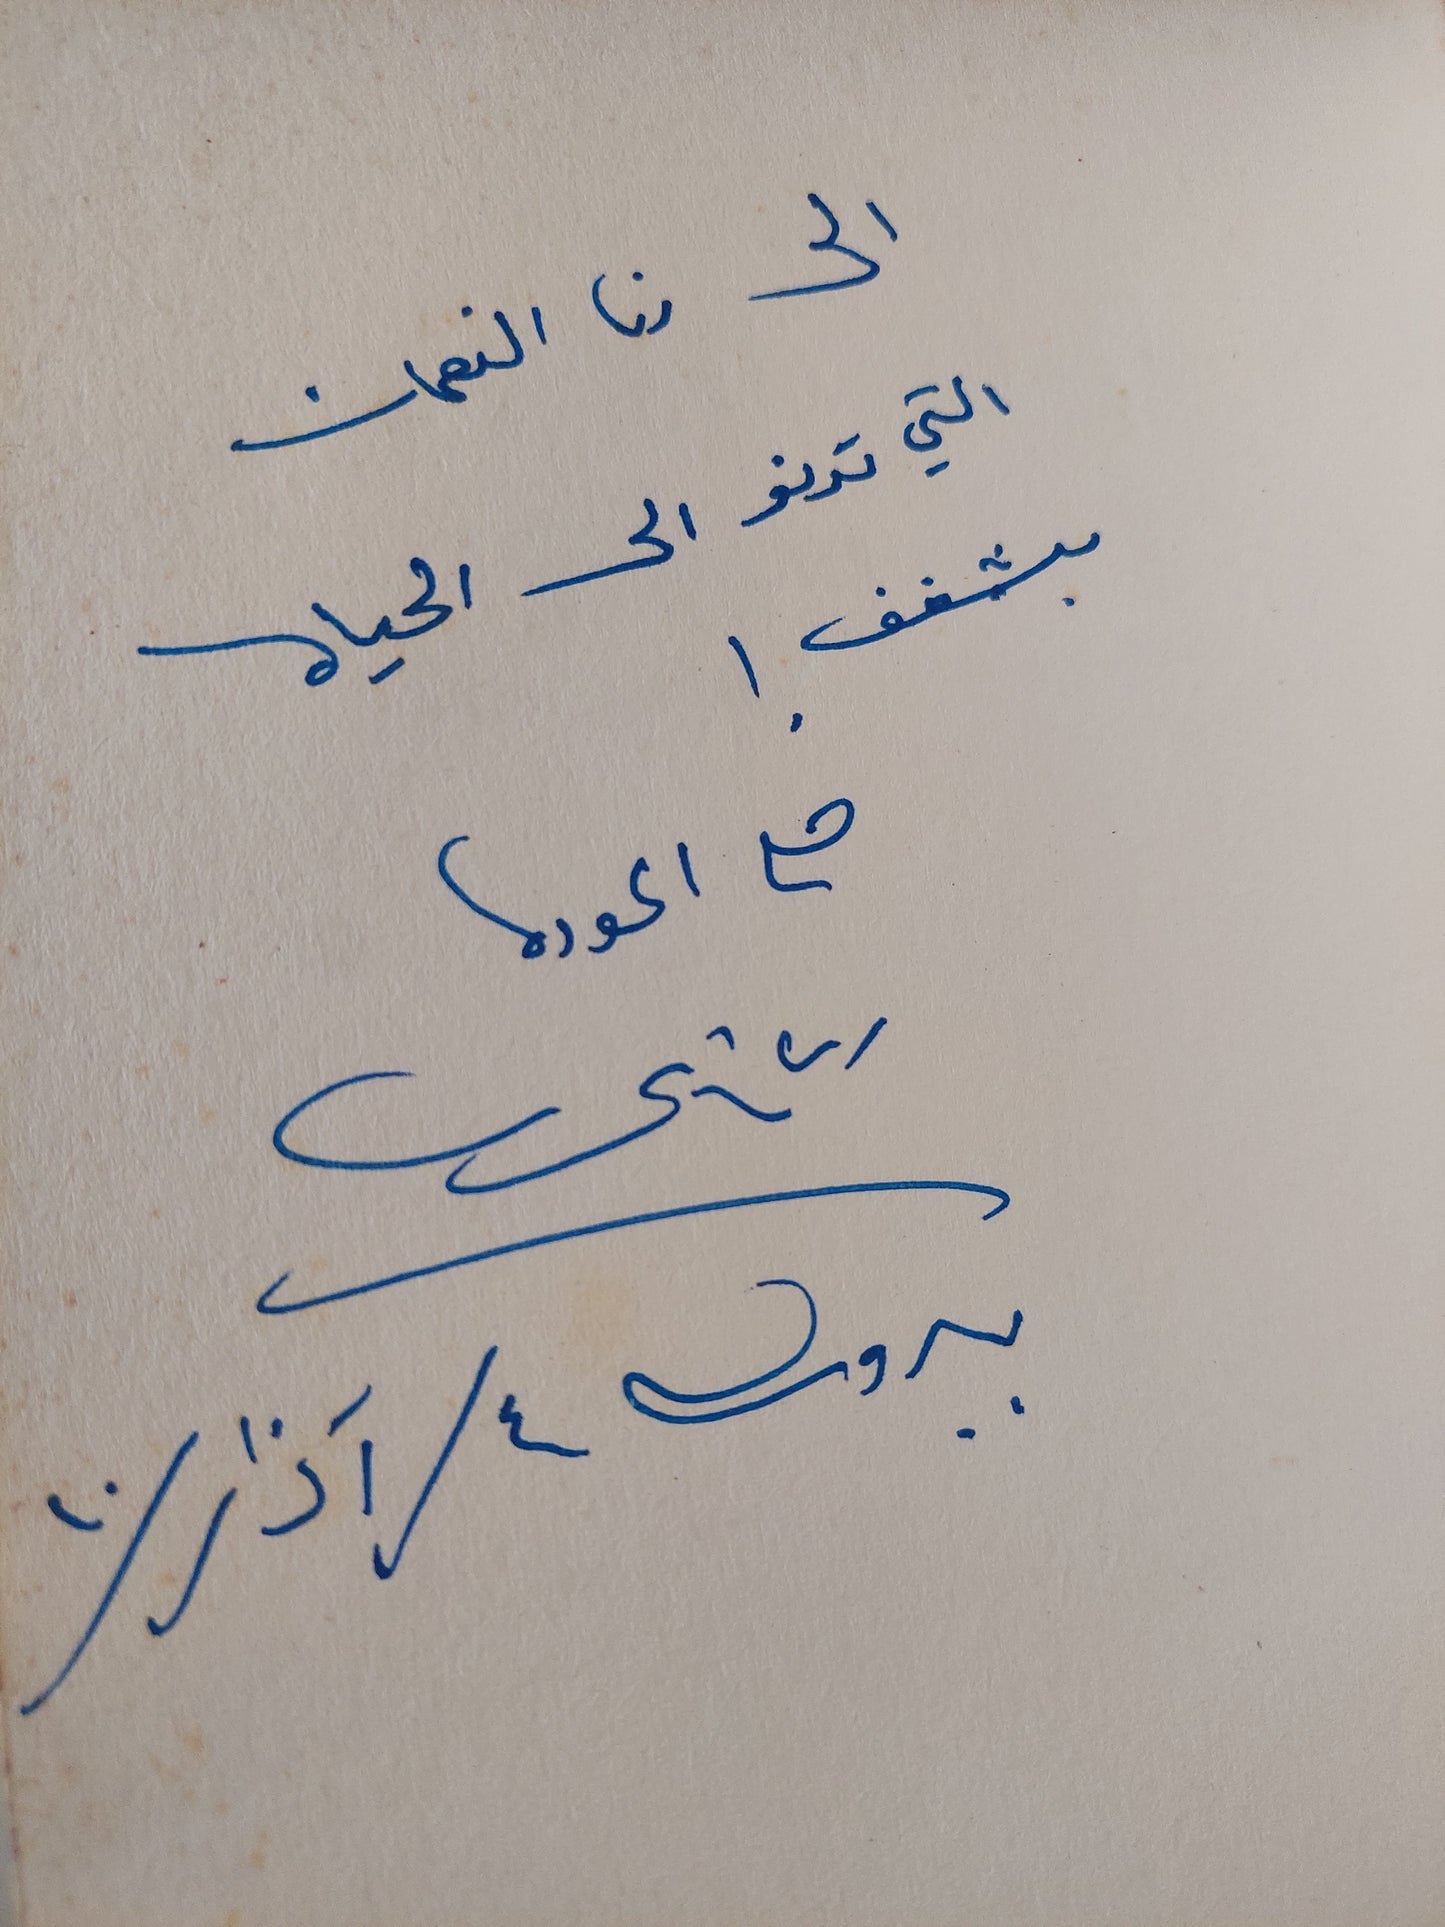 الى رنا النعمان
التي ترنو الى الحياة
بشغف !
مع المودة
بيروت ٤/آذار/